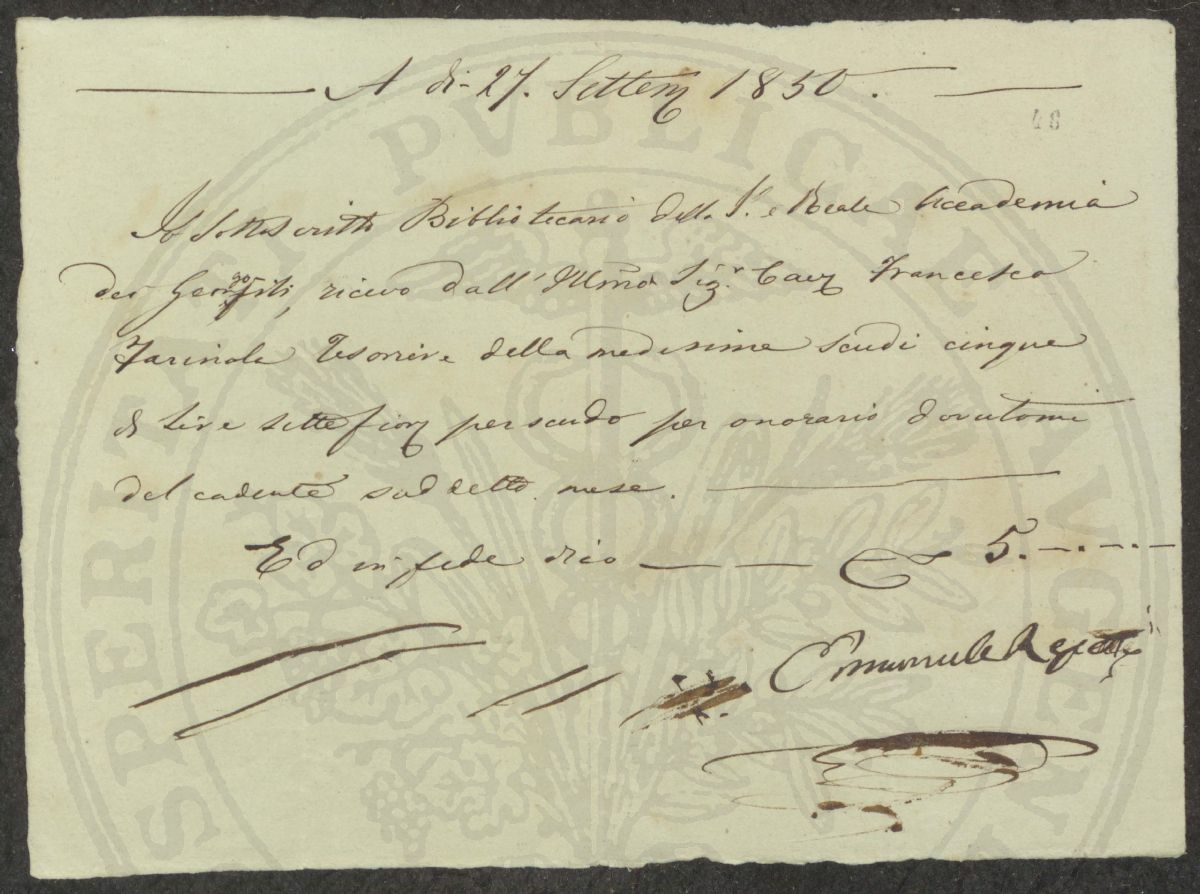 A di 27. Settem 1850.
48
Io Sottoscritto Bibliotecario della I. e Reale Accademia
dei Georgofili, ricevo dall' Illmo Sigr. Cav Francesco
Farinola Tesoriere della medesima scudi cinque
di Lire sette fior per scudo per onorario dovutomi
del cadente suddetto mese.
Ed in fede dico 5.
Emanuele Repetti
PROSPERITATI PVBLICAE AVGENDAE